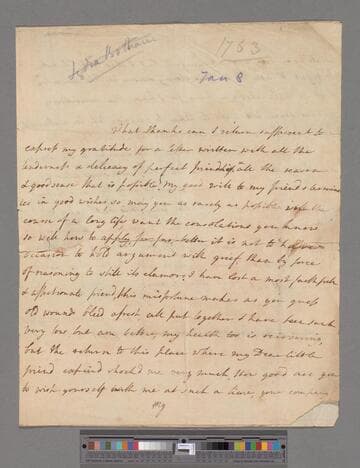 Lydia Botham
1753
Jan 8
What thanks can I return sufficient to
express my gratitude for a letter written with all the
tenderness & delicacy of perfect friendship, all the reason
& good sense that is possible, my good will to my friends
ies in good wishes, so may you as rarely as possible in the
course of a long life want the consolations you know
so well how to apply for, better it is not to have
occasion to hold argument with grief than by force
of reasoning to still its clamors, I have lost a most faithfull
& affectionate friend, this misfortune makes as you guess
old wounds bleed afresh all put together I have been
very low but am better, my health too is recovering,
but the return to this place where my Dear little
friend expired shock'd me very much. How good are you
to wish yourself with me at such a time, your company
my